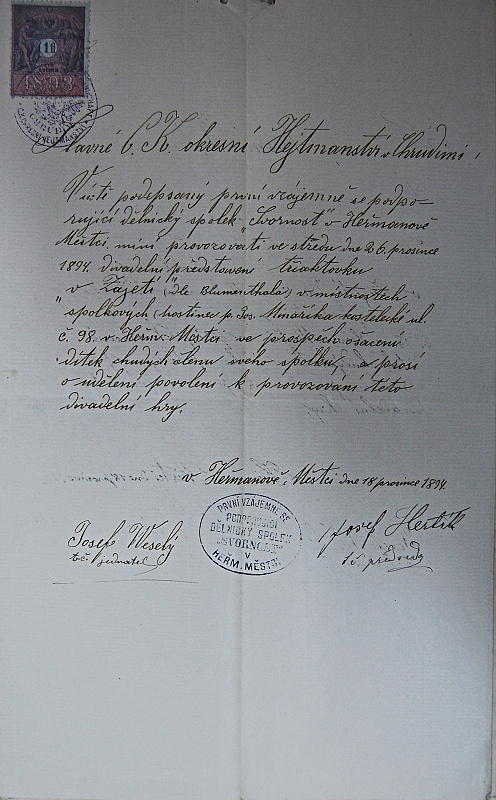 1 fl
1893
Slavné C. K. okresní Hejtmanství v Chrudimi!
V úctě podepsaný první vzájemně se podpo-
rující dělnický spolek „Svornost" v Heřmanově
Městci, míní provozovati ve středu dne 26. prosince
1894. divadelní představení tříaktovku
„V Zajetí" (dle Blumenthala) v místnostech
spolkových (hostinec p. Jos. Minaříka kostelecká ul.
č. 98. v Heřm. Městci ve prospěch ošacení
dítek chudých členu svého spolku, a prosí
o udělení povolení k provozování této
divadelní hry.
v Heřmanově Městci dne 18 prosince 1894.
PRVNÍ VZÁJEMNĚ SE
PODPORUJÍCÍ
DĚLNICKÝ SPOLEK
„SVORNOST"
V
HEŘM. MĚSTCI
Josef Weselý
t.č. jednatel
Josef
t.č. předseda